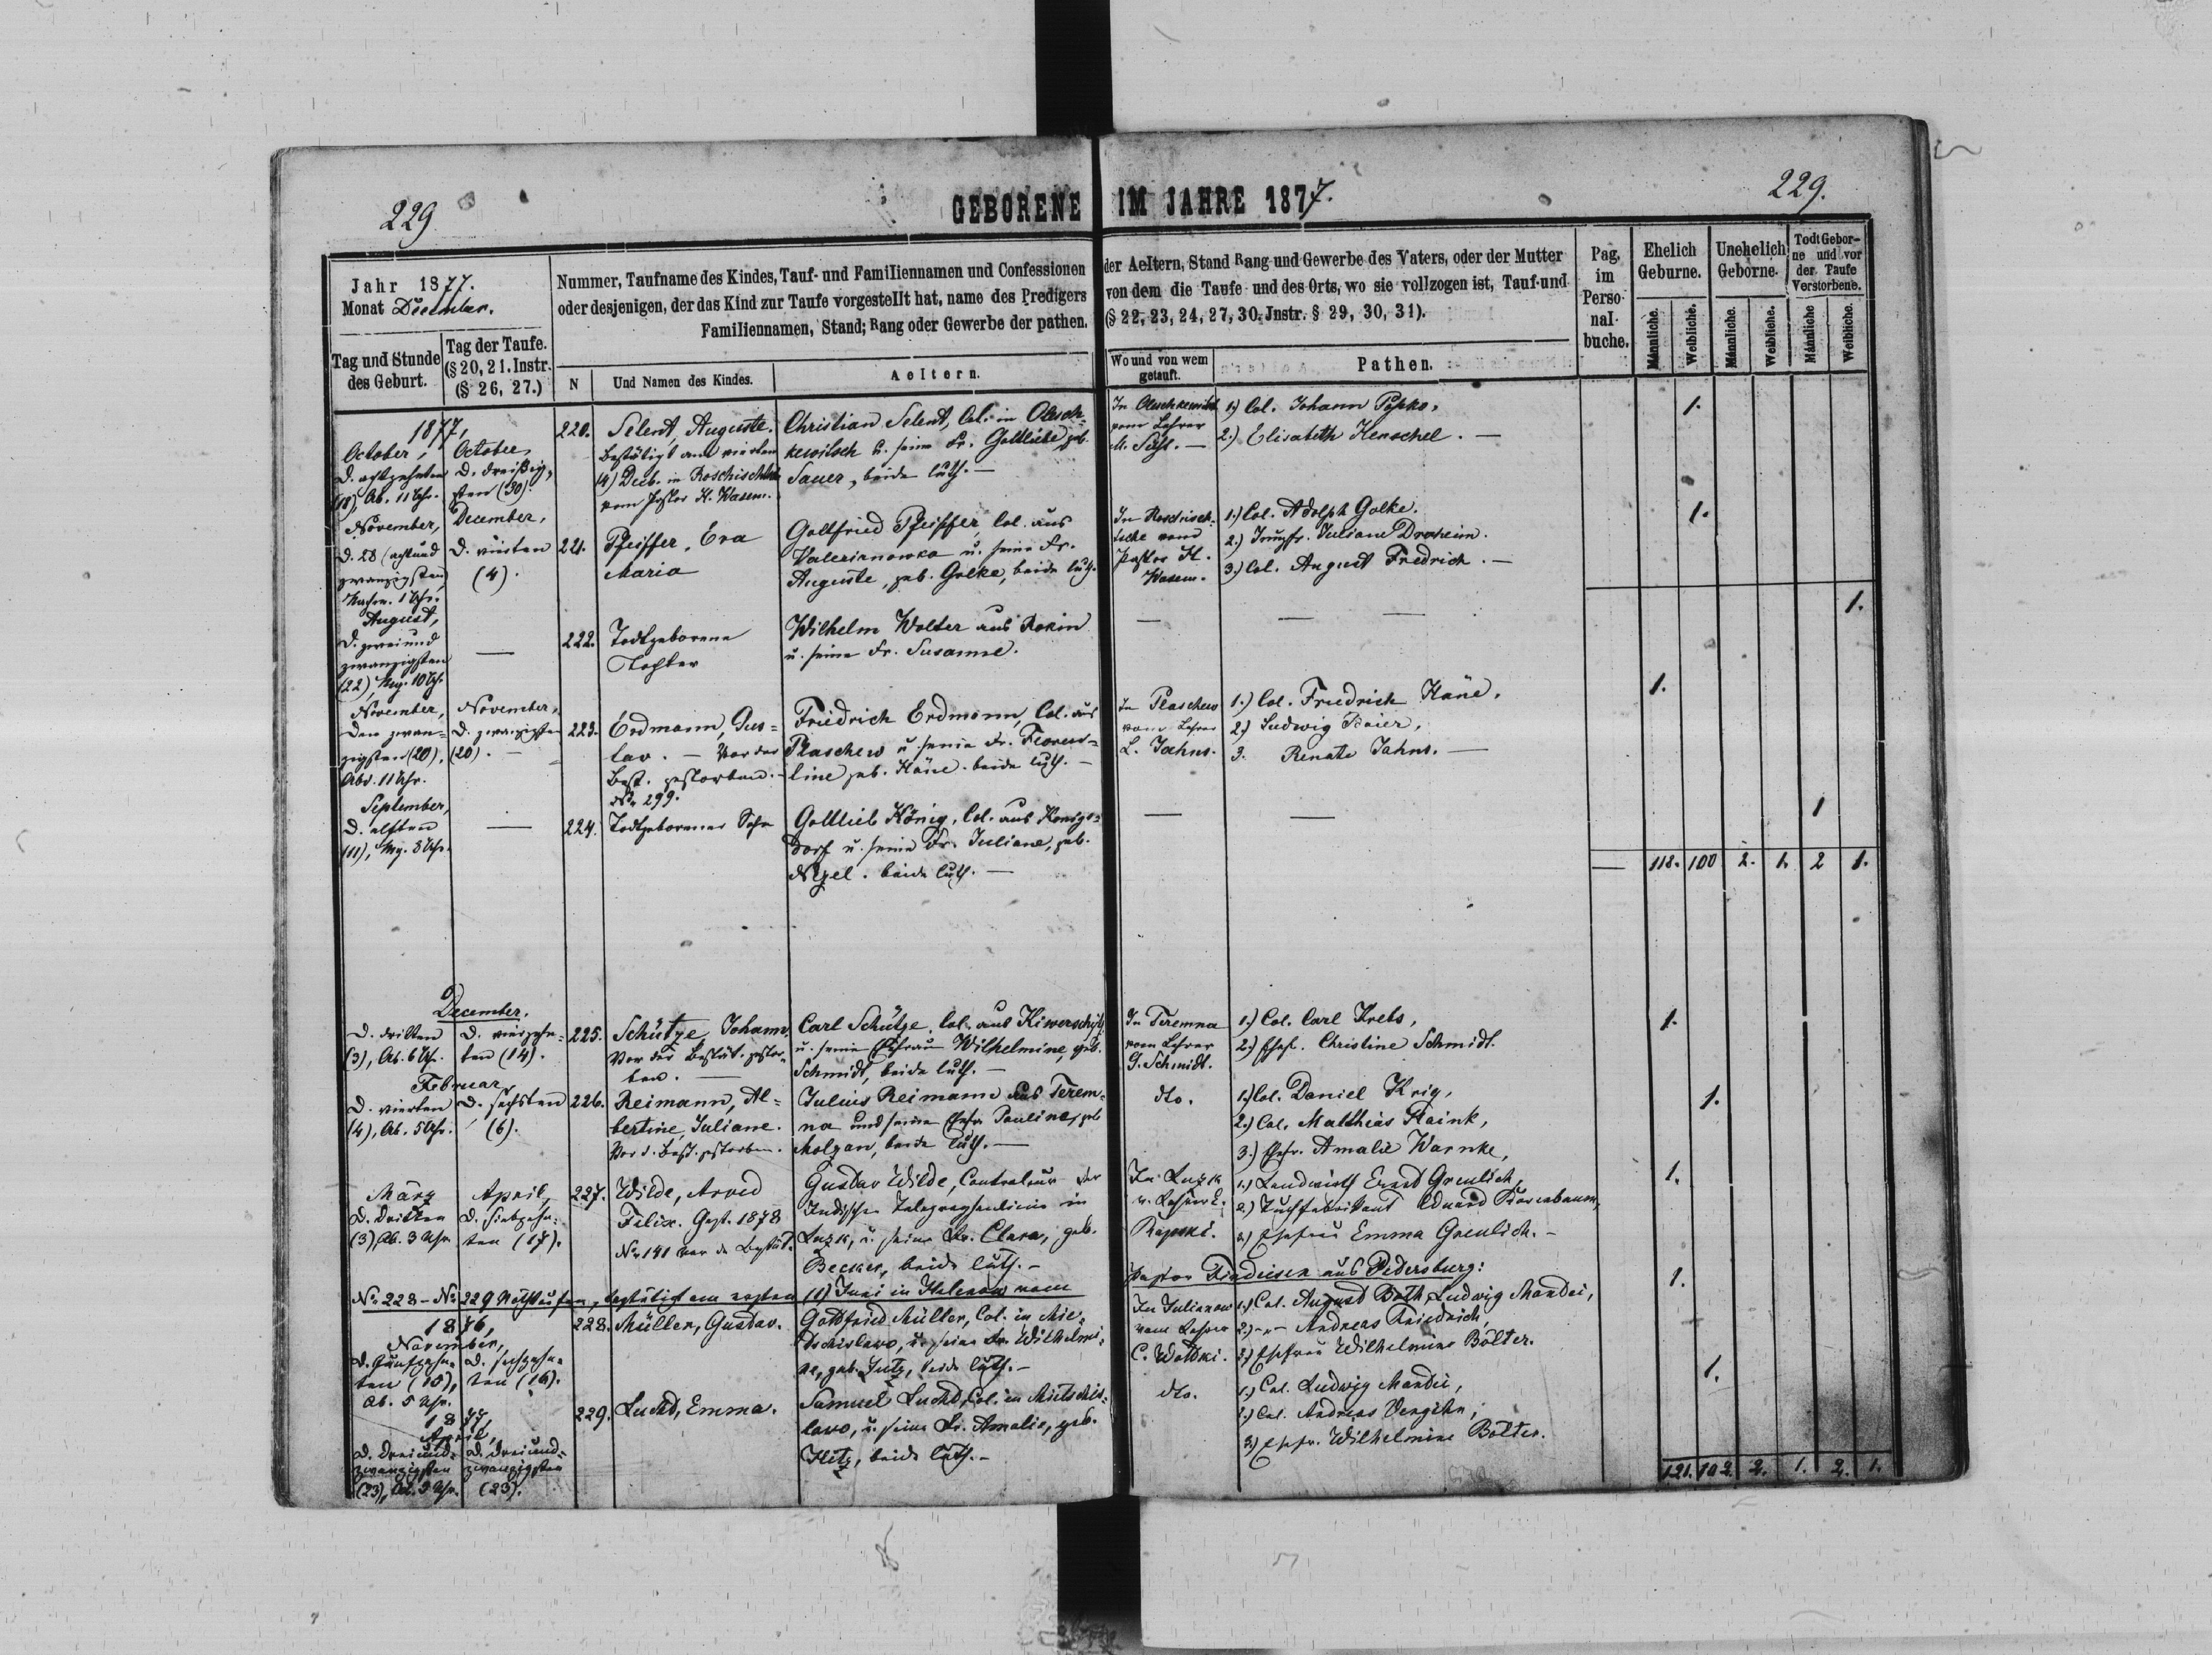 229
GEBORENE IM JAHRE 1877.
229.
Jahr 1877.
Monat December.
Nummer, Taufname des Kindes, Tauf- und Familiennamen und Confessionen
oder desjenigen, der das Kind zur Taufe vorgestellt hat, name des Predigers
Familiennamen, Stand; Rang oder Gewerbe der pathen.
der Aeltern, Stand Rang und Gewerbe des Vaters, oder der Mutter
von dem die Taufe und des Orts, wo sie vollzogen ist, Tauf-und
(§ 22, 23, 24, 27, 30. Jnstr. § 29, 30, 31).
Pag.
im
Perso-
nal-
buche.
Ehelich
Geburne.
Unehelich
Geborne.
Todt Gebor-
ne und vor
der Taufe
Verstorbene.
Männliche.
Weibliche.
Männliche.
Weibliche.
Männliche
Weibliche.
Tag und Stunde
des Geburt.
Tag der Taufe.
(§ 20, 21. Instr.
(§ 26, 27.)
N
Und Namen des Kindes.
Aeltern.
Wo und von wem
getauft.
Pathen.
1877,
October,
D. achtzehnten
(18), Ab. 11 Uhr.
October,
D. dreißig-
sten (30).
220.
Selent, Auguste.
Bestätigt am vierten
(4) Decb. in Roschischtsche
vom Pastor H. Wasem.
Christian Selent, Col. in Olesch-
kewitsch u. seine Fr. Gottliebe, geb.
Sauer, beide luth. —
In Oleschkewitsch
vom Lehrer
1.) Col. Johann Popko.
2.) Elisabeth Henschel. —
1.
November,
D. 28 (achtund
zwanzigsten)
Nachm. 1 Uhr.
December,
D. vierten
(4).
221.
Pfeiffer, Eva
Maria
Gottfried Pfeiffer, Col. aus
Valerianowka u. seine Fr.
Auguste, geb. Golke, beide luth.
In Roschisch-
tsche vom
Pastor H.
Wasem.
1.) Col. Adolph Golke.
2.) Jungfr. Juliane Draheim.
3.) Col. August Fredrich. —
1.
August,
D. zweiund
zwanzigsten
(22), Mrg. 10 Uhr.
—
222.
Todtgeborene
Tochter
Wilhelm Wolter aus Rokin
u. seine Fr. Susanne.
— — —
1.
November,
Den zwan-
zigsten (20),
Abd. 11 Uhr.
November,
D. zwanzigsten
(20). —
223.
Erdmann, Gus-
lav. — Vor der
Best. gestorben. —
No. 299.
Friedrich Erdmann, Col. aus
Plaschew u. seine Fr. Floren-
tine geb. Häne. beide luth. —
In Plaschew
vom Lehrer
L. Jahns.
1.) Col. Friedrich Häne,
2.) Ludwig Baier,
3. Renate Jahns. —
1.
September,
D. elften
(11), Mrg. 3 Uhr.
—
224.
Todtgeborener Sohn
Gottlieb König, Col. aus Königs-
dorf u. seine Fr. Juliane, geb.
beide luth. —
— —
1
— 118. 100 2. 1. 2 1.
December.
D. dritten
(3), Ab. 6 Uhr.
D. vierzehn-
ten (14).
225.
Schütze, Johann,
Vor der Bestät. gestor-
ben. —
Carl Schütze, Col. aus
u. seine Ehefrau Wilhelmine, geb.
Schmidt, beide luth. —
In Teremna
vom Lehrer
G. Schmidt.
1.) Col. Carl Krebs,
2.) Ehef. Christine Schmidt.
1.
Februar,
D. vierten
(4), Ab. 5 Uhr.
D. sechsten
(6).
226.
Reimann, Al-
bertine, Juliane.
Vor d. Best. gestorben.
Julius Reimann aus Terem-
na und seine Ehefr. Pauline, geb
Molzan, beide luth. —
dto.
1.) Col. Daniel Krig,
2.) Col. Matthias Haink,
3.) Ehefr. Amalie Warnke,
1.
März
D. dritten
(3), Ab. 3 Uhr
April,
D. siebzehn-
ten (17).
227.
Wilde, Arved
Felix. Gest. 1878
No. 141 vor der Bestät.
Gustav Wilde, Controleur der
Indischen Telegraphenlinie in
Luzk, u. seine Fr. Clara, geb.
Becker, beide luth. —
In Luzk
v. Lehrer
1.) Landwirth Ernst Greulich,
2.) Tuchfabrikant Eduard
3.) Ehefrau Emma Greulich. —
1.
No. 228 - No. 229 Nothtaufen, bestätigt am ersten (1) Juni in vom
Pastor aus Petersburg:
1876,
November,
D. fünfzehn-
ten (15),
Ab. 5 Uhr.
D. sechzehn-
ten (16).
228.
Müller, Gustav.
Gottfried Müller, Col. in Mie-
tschislawo, u. seine Fr. Wilhelmi-
ne, geb. Jutz, beide luth. —
In Julianow
vom Lehrer
1.) Col. August Both, Ludwig Mandei,
2.) -"- Andreas Friedrich,
3.) Ehefrau Wilhelmine Bölter.
1.
1877,
April,
D. dreiund-
zwanzigsten
D. dreiund-
zwanzigsten
(23).
229.
Lucht, Emma.
Samuel Lucht, Col. in Mietschis-
lawo, u. seine Fr. Amalie, geb.
Hitz, beide luth. —
dto.
1.) Col. Ludwig Mandei,
2.) Col. Andreas
3.) Ehefr. Wilhelmine Bölter.
1.
121. 102. 2. 1. 2. 1.